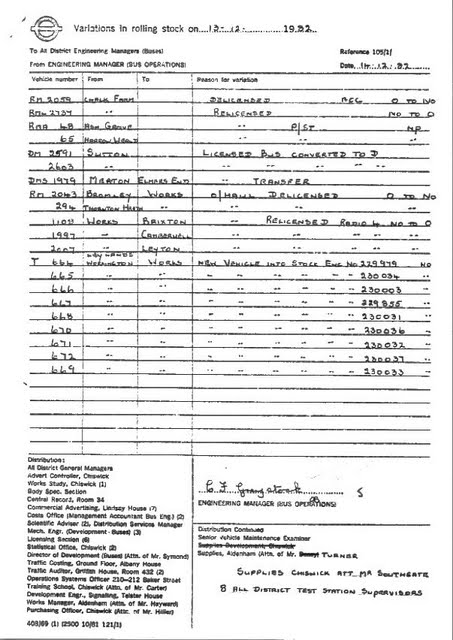 Variations in rolling stock on 13.12. 1982
To All District Engineering Managers (Buses) Reference 105/2/
From ENGINEERING MANAGER (BUS OPERATIONS) Date 14.12.82
Vehicle number From To Reason for variation
RM 2059 CHALK FARM DELICENSED REG O TO NO
RML 2737 " RELICENSED NO TO O
RMA 48 ASH GROVE " P/ST NP
65 HARROW WEALD " " "
DM 2591 SUTTON LICENSED BUS CONVERTED TO D
2603 " " " " "
DMS 1979 MERTON ELMERS END TRANSFER
RM 2043 BROMLEY WORKS O/HAUL DELICENSED O TO NO
294 THORNTON HEATH " " " "
1103 WORKS BRIXTON RELICENSED RADIO 4 NO TO O
1997 " CAMBERWELL " " "
2007 " LEYTON " " "
T 664 WORKINGTON WORKS NEW VEHICLE INTO STOCK ENG NO 229979 NO
665 " " " " " " " 230034 "
666 " " " " " " " 230003 "
667 " " " " " " " 229855 "
668 " " " " " " " 230031 "
670 " " " " " " " 230036 "
671 " " " " " " " 230032 "
672 " " " " " " " 230037 "
669 " " " " " " " 230033 "
Distribution:
All District General Managers
Advert Controller, Chiswick
Works Study, Chiswick (1)
Body Spec. Section
Central Record, Room 34
Commercial Advertising, Lindsay House (7)
Costs Office (Management Accountant Bus Eng.) (2)
Scientific Adviser (2), Distribution Services Manager
Mech. Engr. (Development - Buses) (3)
Licensing Section (6)
Statistical Office, Chiswick (2)
Director of Development (Buses) (Attn. of Mr. Symond)
Traffic Costing, Ground Floor, Albany House
Traffic Auditor, Griffith House, Room 432 (2)
Operations Systems Officer 210-212 Baker Street
Training School, Chiswick (Attn. of Mr. Carter)
Development Engr., Signalling, Telstar House
Works Manager, Aldenham (Attn. of Mr. Hayward)
Purchasing Officer, Chiswick (Attn. of Mr. Hiller)
403/69 (1) (2500 10/81 121/1)
ENGINEERING MANAGER (BUS OPERATIONS)
Distribution Continued
Senior Vehicle Maintenance Examiner
Supplies Development, Chiswick
Supplies, Aldenham (Attn. of Mr. TURNER
SUPPLIES CHISWICK ATT MR SOUTHGATE
8 ALL DISTRICT TEST STATION SUPERVISORS